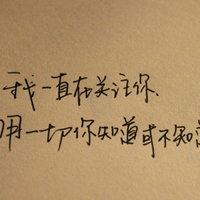 我一直在关注你.
用一切你知道或不知道